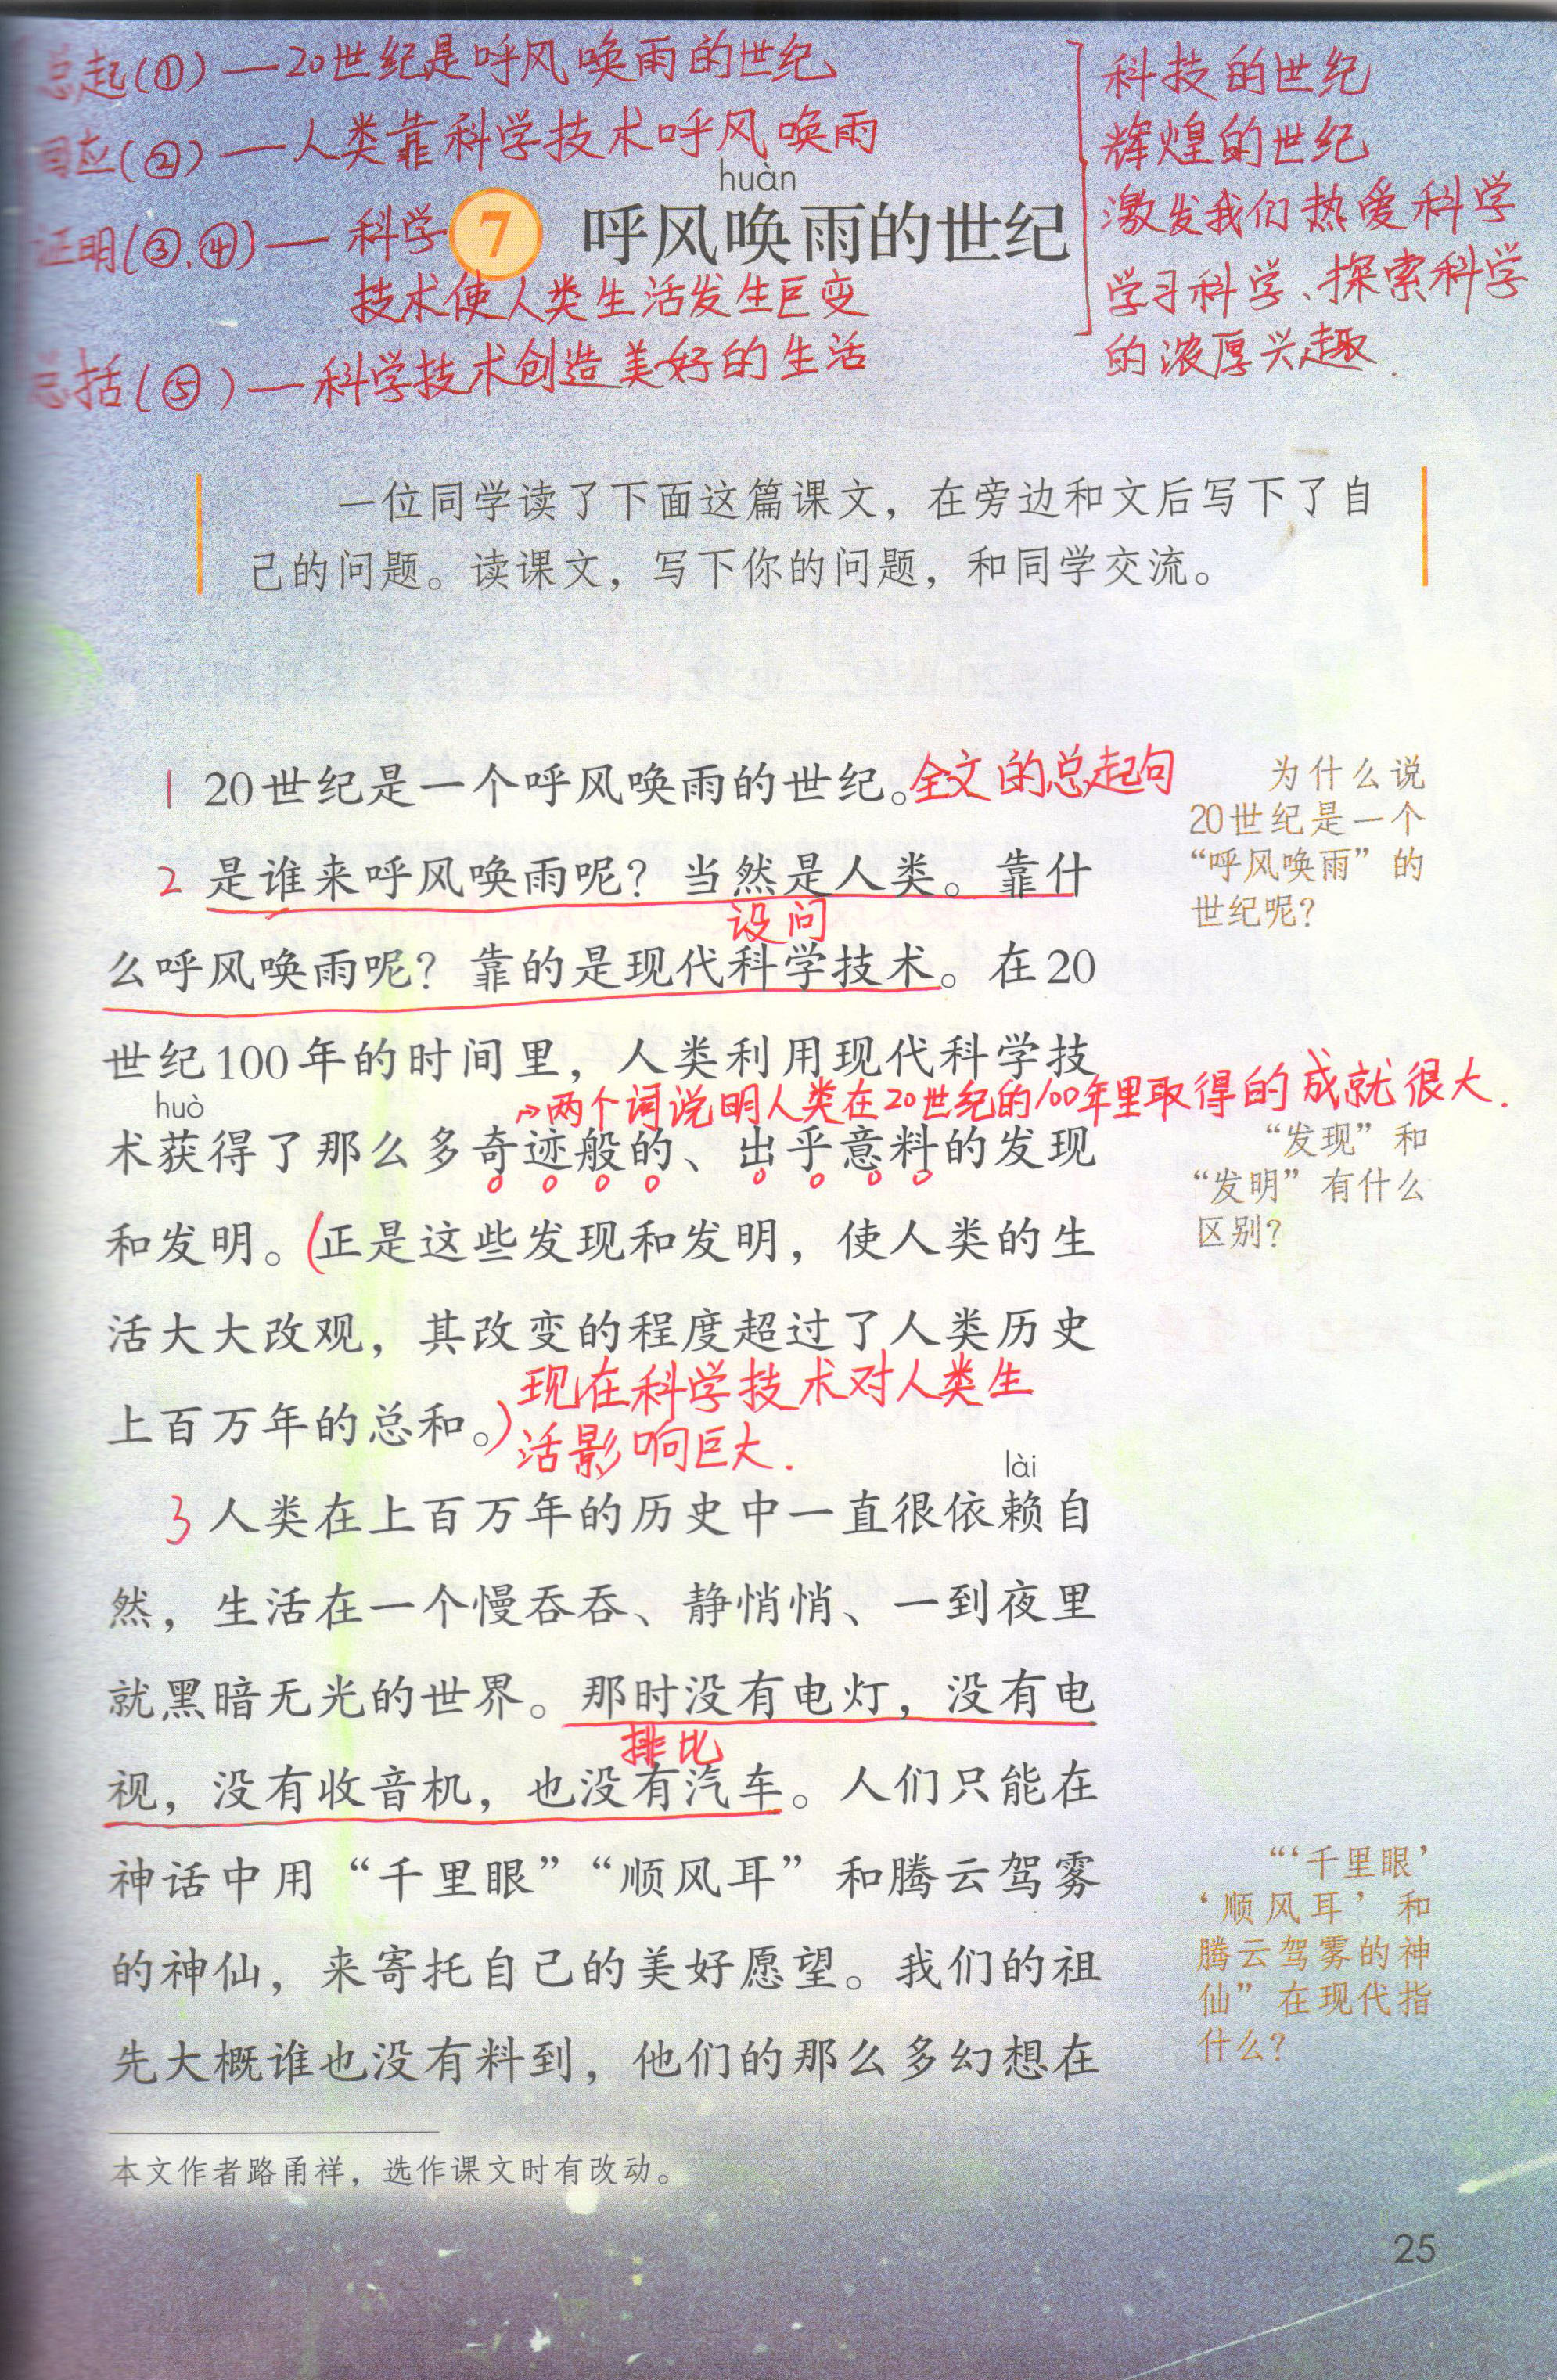 总起(①)—20世纪是呼风唤雨的世纪
回应(②)—人类靠科学技术呼风唤雨
证明(③、④)—科学
技术使人类生活发生巨变
总括(⑤)—科学技术创造美好的生活
科技的世纪
辉煌的世纪
激发我们热爱科学
学习科学、探索科学
的浓厚兴趣.
huàn
7 呼风唤雨的世纪
一位同学读了下面这篇课文，在旁边和文后写下了自
己的问题。读课文，写下你的问题，和同学交流。
1 20世纪是一个呼风唤雨的世纪。全文的总起句
2 是谁来呼风唤雨呢？当然是人类。靠什
设问
么呼风唤雨呢？靠的是现代科学技术。在20
世纪100年的时间里，人类利用现代科学技
两个词说明人类在20世纪的100年里取得的成就很大.
huò
术获得了那么多奇迹般的、出乎意料的发现
和发明。(正是这些发现和发明，使人类的生
活大大改观，其改变的程度超过了人类历史
上百万年的总和。)
现在科学技术对人类生
活影响巨大.
lài
3 人类在上百万年的历史中一直很依赖自
然，生活在一个慢吞吞、静悄悄、一到夜里
就黑暗无光的世界。那时没有电灯，没有电
排比
视，没有收音机，也没有汽车。人们只能在
神话中用“千里眼”“顺风耳”和腾云驾雾
的神仙，来寄托自己的美好愿望。我们的祖
先大概谁也没有料到，他们的那么多幻想在
为什么说
20世纪是一个
“呼风唤雨”的
世纪呢？
“发现”和
“发明”有什么
区别？
“‘千里眼’
‘顺风耳’和
腾云驾雾的神
仙”在现代指
什么？
本文作者路甬祥，选作课文时有改动。
25